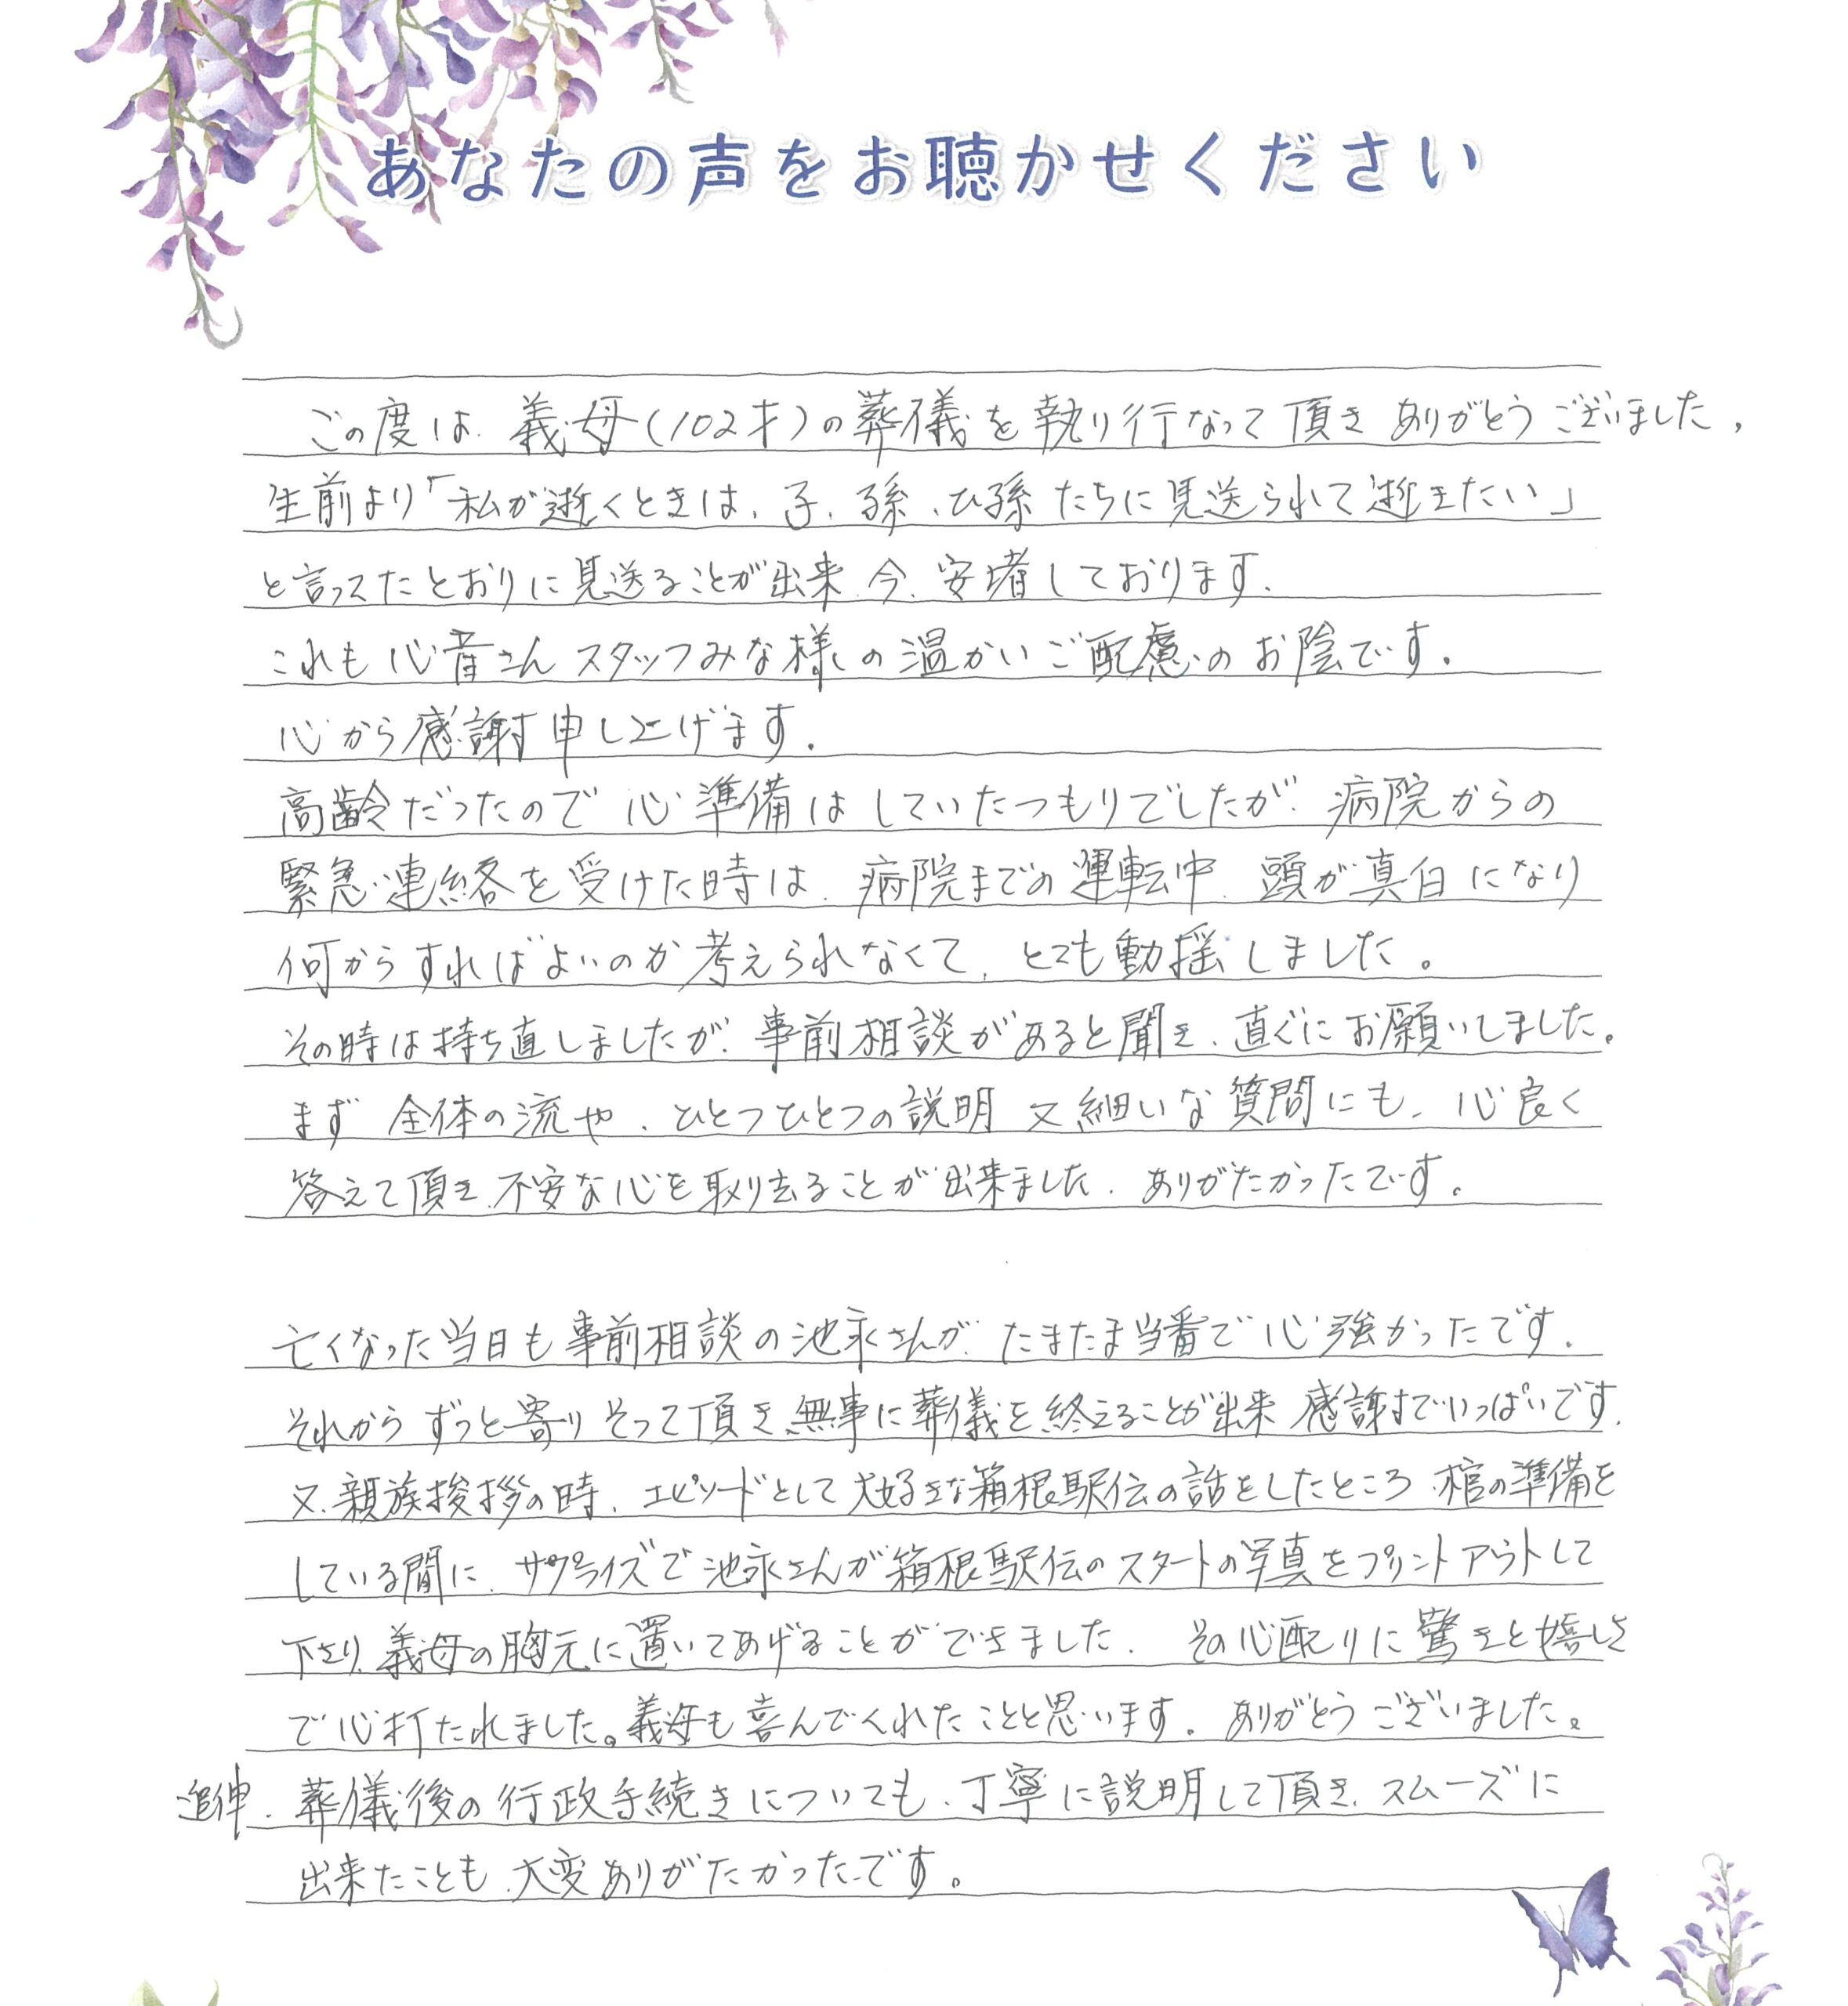 あなたの声をお聴かせください
この度は、義母(102才)の葬儀を執り行なって頂き ありがとうございました。
生前より「私が逝くときは、子、孫、ひ孫たちに見送られて逝きたい」
と言ってたとおりに見送ることが出来、今、安堵しております。
これも心音さんスタッフみな様の温かいご配慮のお陰です。
心から感謝申し上げます。
高齢だったので 心準備はしていたつもりでしたが、病院からの
緊急連絡を受けた時は、病院までの運転中、頭が真白になり
何からすればよいのか考えられなくて、とても動揺しました。
その時は持ち直しましたが、事前相談があると聞き、直ぐにお願いしました。
まず 全体の流や、ひとつひとつの説明 又細いな質問にも、心良く
答えて頂き、不安な心を取り去ることが出来ました。ありがたかったです。
亡くなった当日も事前相談の池永さんが、たまたま当番で心強かったです。
それからずっと寄りそって頂き、無事に葬儀を終えることが出来 感謝でいっぱいです。
又、親族挨拶の時、エピソードとして大好きな箱根駅伝の話をしたところ、棺の準備を
している間に、サプライズで池永さんが箱根駅伝のスタートの写真をプリントアウトして
下さり、義母の胸元に置いてあげることができました。その心配りに驚きと嬉しさ
で心打たれました。義母も喜んでくれたことと思います。ありがとうございました。
追伸、葬儀後の行政手続きについても、丁寧に説明して頂き、スムーズに
出来たことも、大変ありがたかったです。